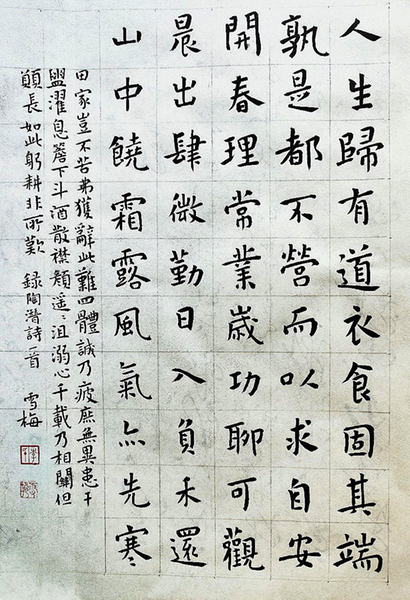 人生歸有道衣食固其端
孰是都不營而以求自安
開春理常業歲功聊可觀
晨出肆微勤日入負禾還
山中饒霜露風氣亦先寒
田家豈不苦弗獲辭此難四體誠乃疲庶無異患干
盥濯息簷下斗酒散襟顏遥〻沮溺心千載乃相關但
願長如此躬耕非所歎 録陶潛詩一首 雪梅